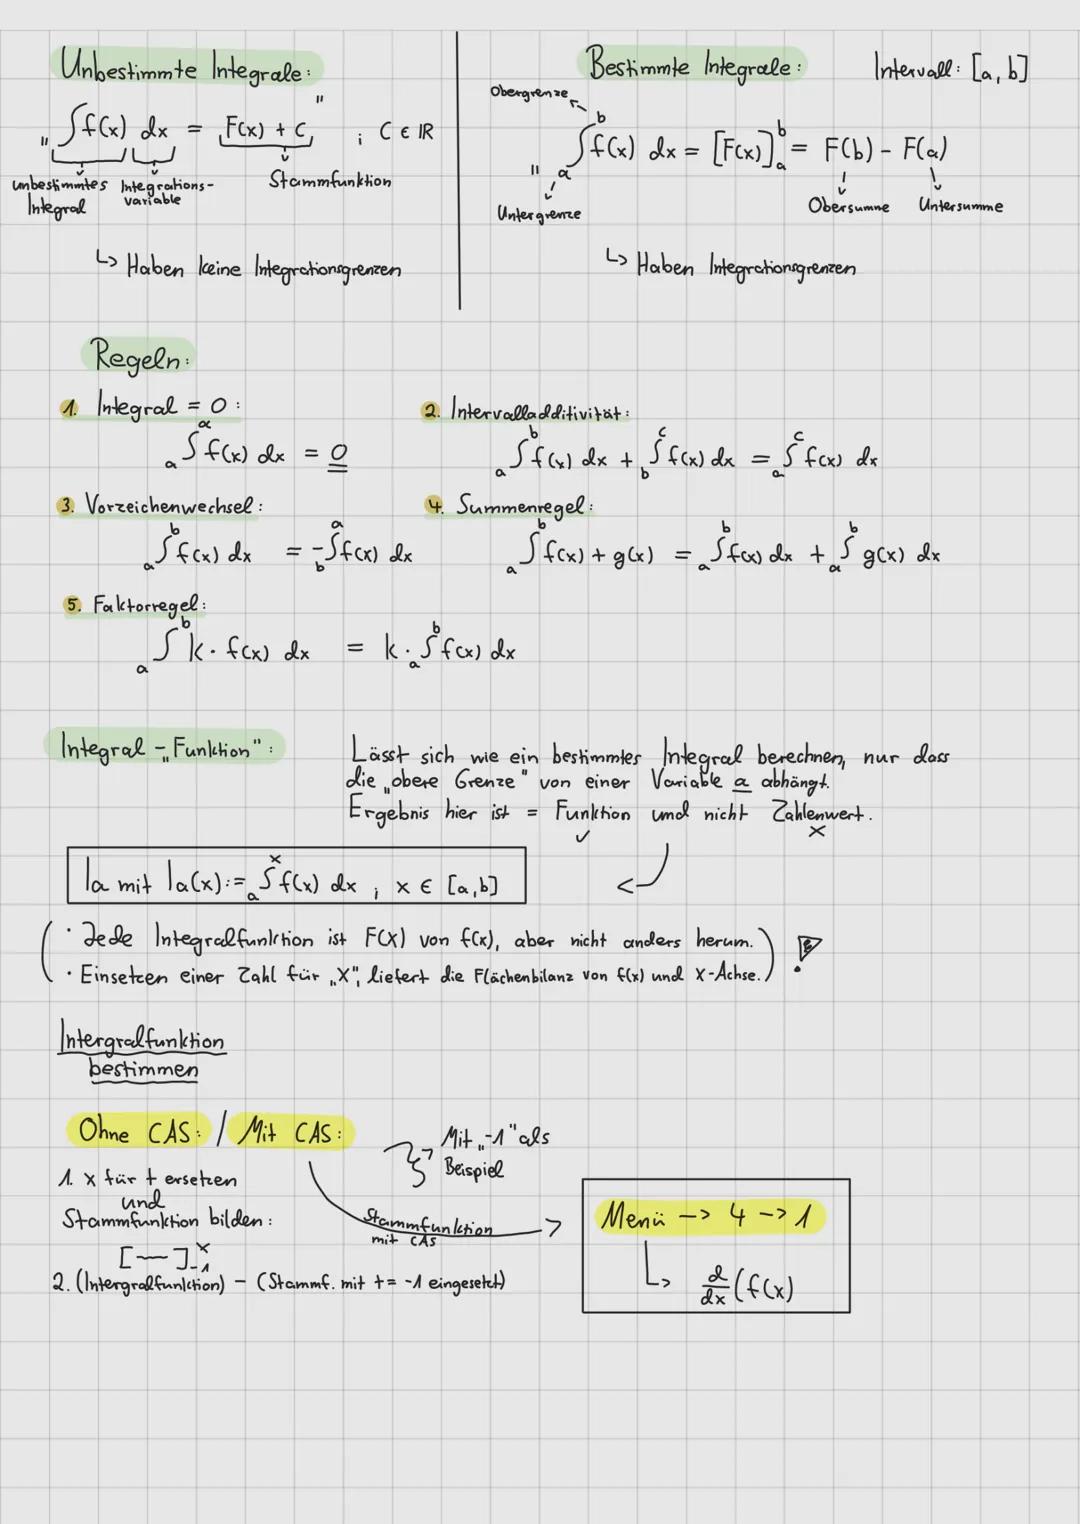 Unbestimmte Integrale:
„ ∫f(x) dx = F(x) + C " ; C ∈ ℝ
unbestimmtes Integral
Integrations-variable
Stammfunktion
↳ Haben keine Integrationsgrenzen
Bestimmte Integrale:
Intervall: [a, b]
Obergrenze
" a∫b f(x) dx = [F(x)]ba = F(b) - F(a)
Untergrenze
Obersumme
Untersumme
↳ Haben Integrationsgrenzen
Regeln:
1. Integral = 0:
a∫a f(x) dx = 0
2. Intervalladditivität:
a∫b f(x) dx + b∫c f(x) dx = a∫c f(x) dx
3. Vorzeichenwechsel:
a∫b f(x) dx = -b∫a f(x) dx
4. Summenregel:
a∫b f(x) + g(x) = a∫b f(x) dx + a∫b g(x) dx
5. Faktorregel:
a∫b k · f(x) dx = k · a∫b f(x) dx
Integral-„Funktion":
Lässt sich wie ein bestimmtes Integral berechnen, nur dass
die „obere Grenze" von einer Variable a abhängt.
Ergebnis hier ist = Funktion und nicht Zahlenwert.
✓ x
Ia mit Ia(x):= a∫x f(x) dx ; x ∈ [a,b]
· Jede Integralfunktion ist F(X) von f(x), aber nicht anders herum.
· Einsetzen einer Zahl für „X", liefert die Flächenbilanz von f(x) und X-Achse.
Intergralfunktion
bestimmen
Ohne CAS: / Mit CAS:
Mit „-1" als
Beispiel
1. x für t ersetzen
und
Stammfunktion bilden:
[—]x-1
2. (Intergralfunktion) - (Stammf. mit t = -1 eingesetzt)
Stammfunktion
mit CAS
Menü -> 4 -> 1
↳ d/dx (f(x)